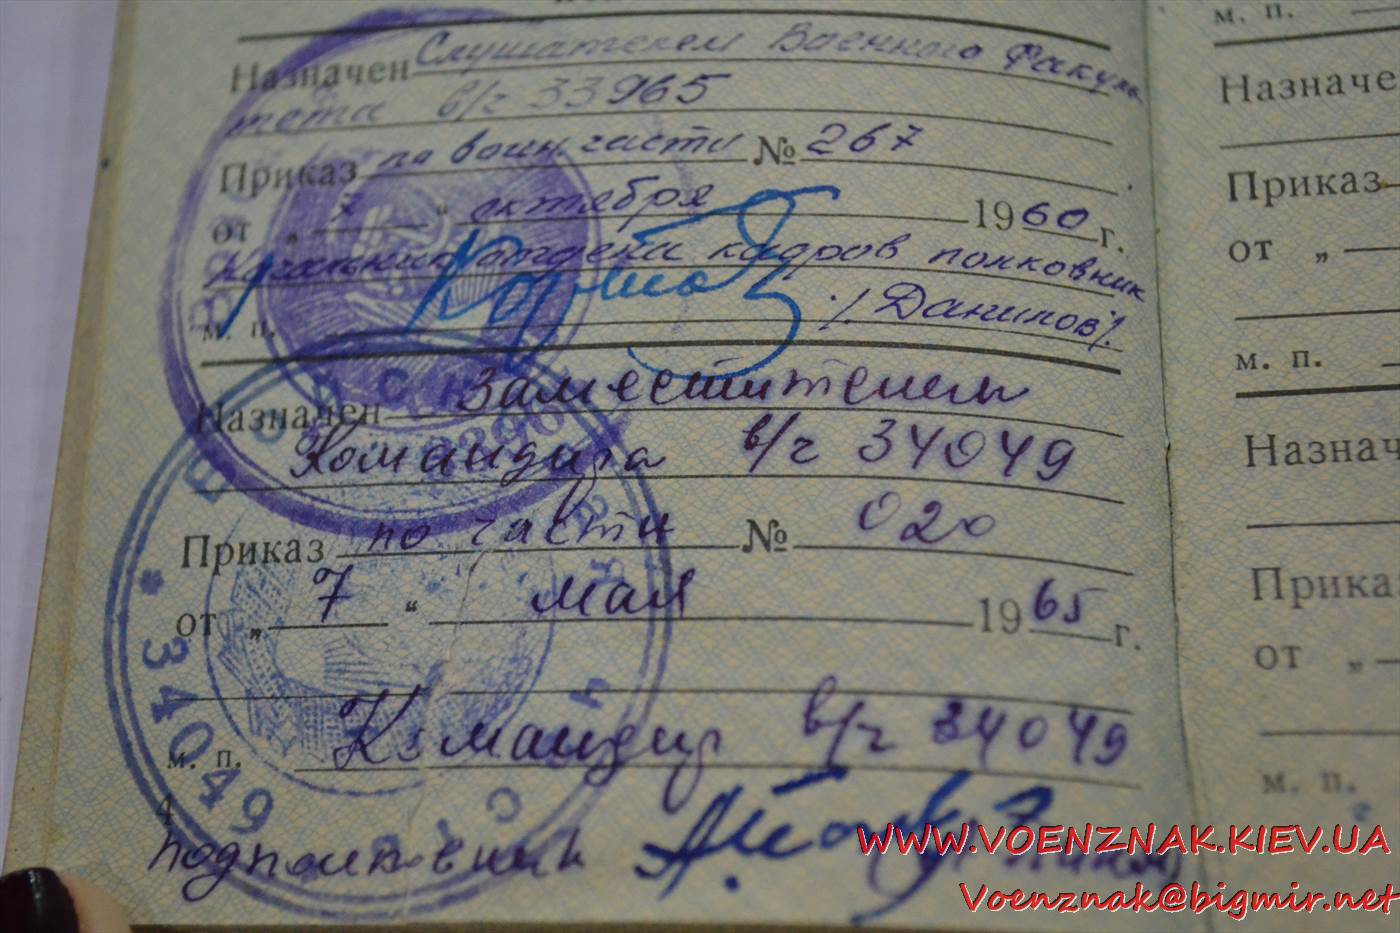 Назначен Слушателем Военного Факуль
тета в/ч 33965
Приказ по воин. части № 267
от „ 7 “ октября 1960 г.
Начальник отдела кадров полковник
м. п. /Данилов/.
Назначен Заместителем
Командира в/ч 34049
Приказ по части № 020
от „ 7 “ мая 1965 г.
Командир в/ч 34049
м. п.
4
подполковник
* 34049
СССР
м. п.
Назначе
Приказ
от „
м. п.
Назнач
Прика
от „
м. п.
WWW.VOENZNAK.KIEV.UA
Voenznak@bigmir.net